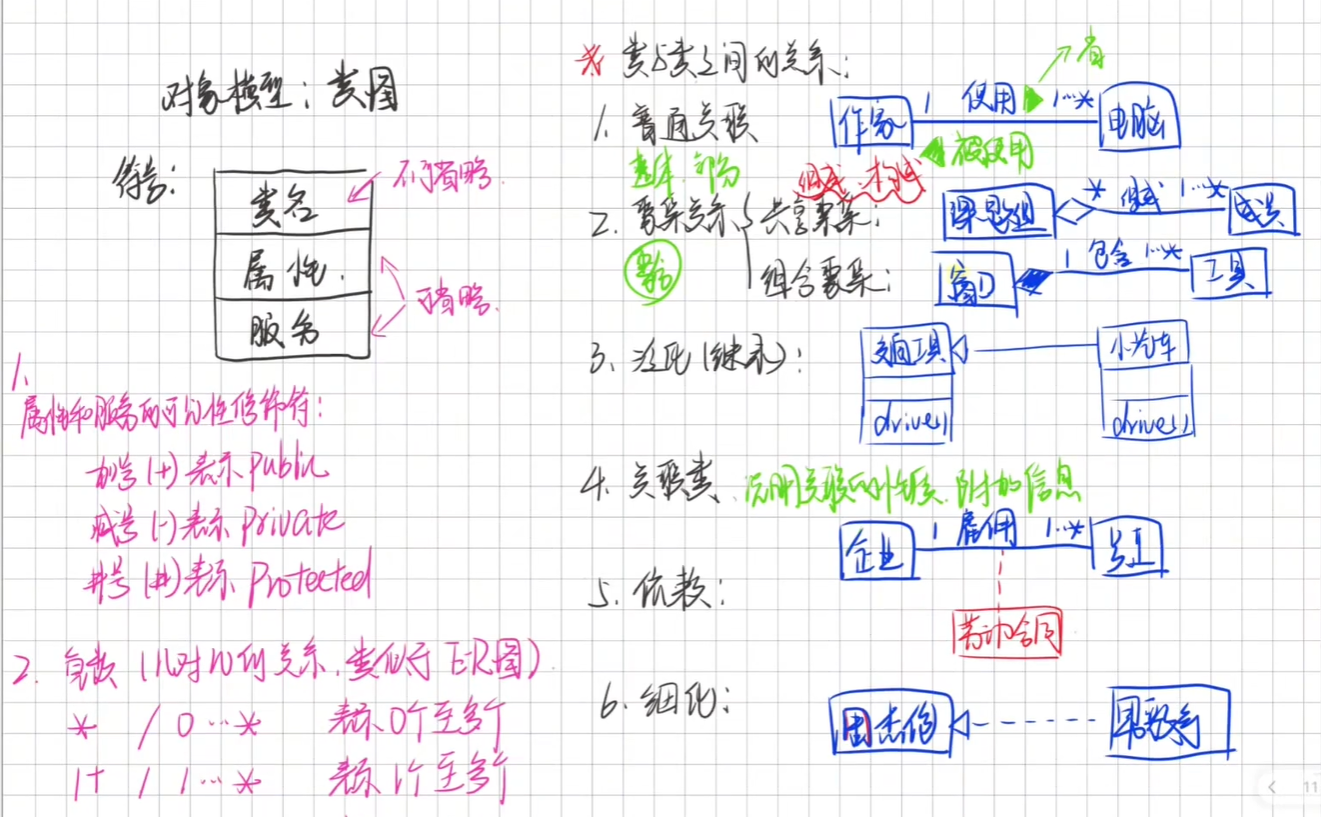 对象模型：类图
符号：
类名
属性
服务
不可省略
可省略
1.
属性和服务的可见性修饰符：
加号(+)表示public
减号(-)表示private
井号(#)表示Protected
2. 复数(几对几的关系,类似于E-R图).
* / 0…* 表示0个至多个
1+ / 1…* 表示1个至多个
类与类之间的关系：
1. 普通关联
作家 1 使用 1…* 电脑
被使用
整体 部分
组成
2. 聚集关系
共享聚集：
课题组 * 组成 1…* 成员
组合聚集：
窗口 1 包含 1…* 工具
3. 泛化(继承)：
交通工具
小汽车
drive()
drive()
4. 关联类 说明关联的性质、附加信息
企业 1 雇佣 1…* 员工
劳动合同
5. 依赖：
6. 细化：
周杰伦
11